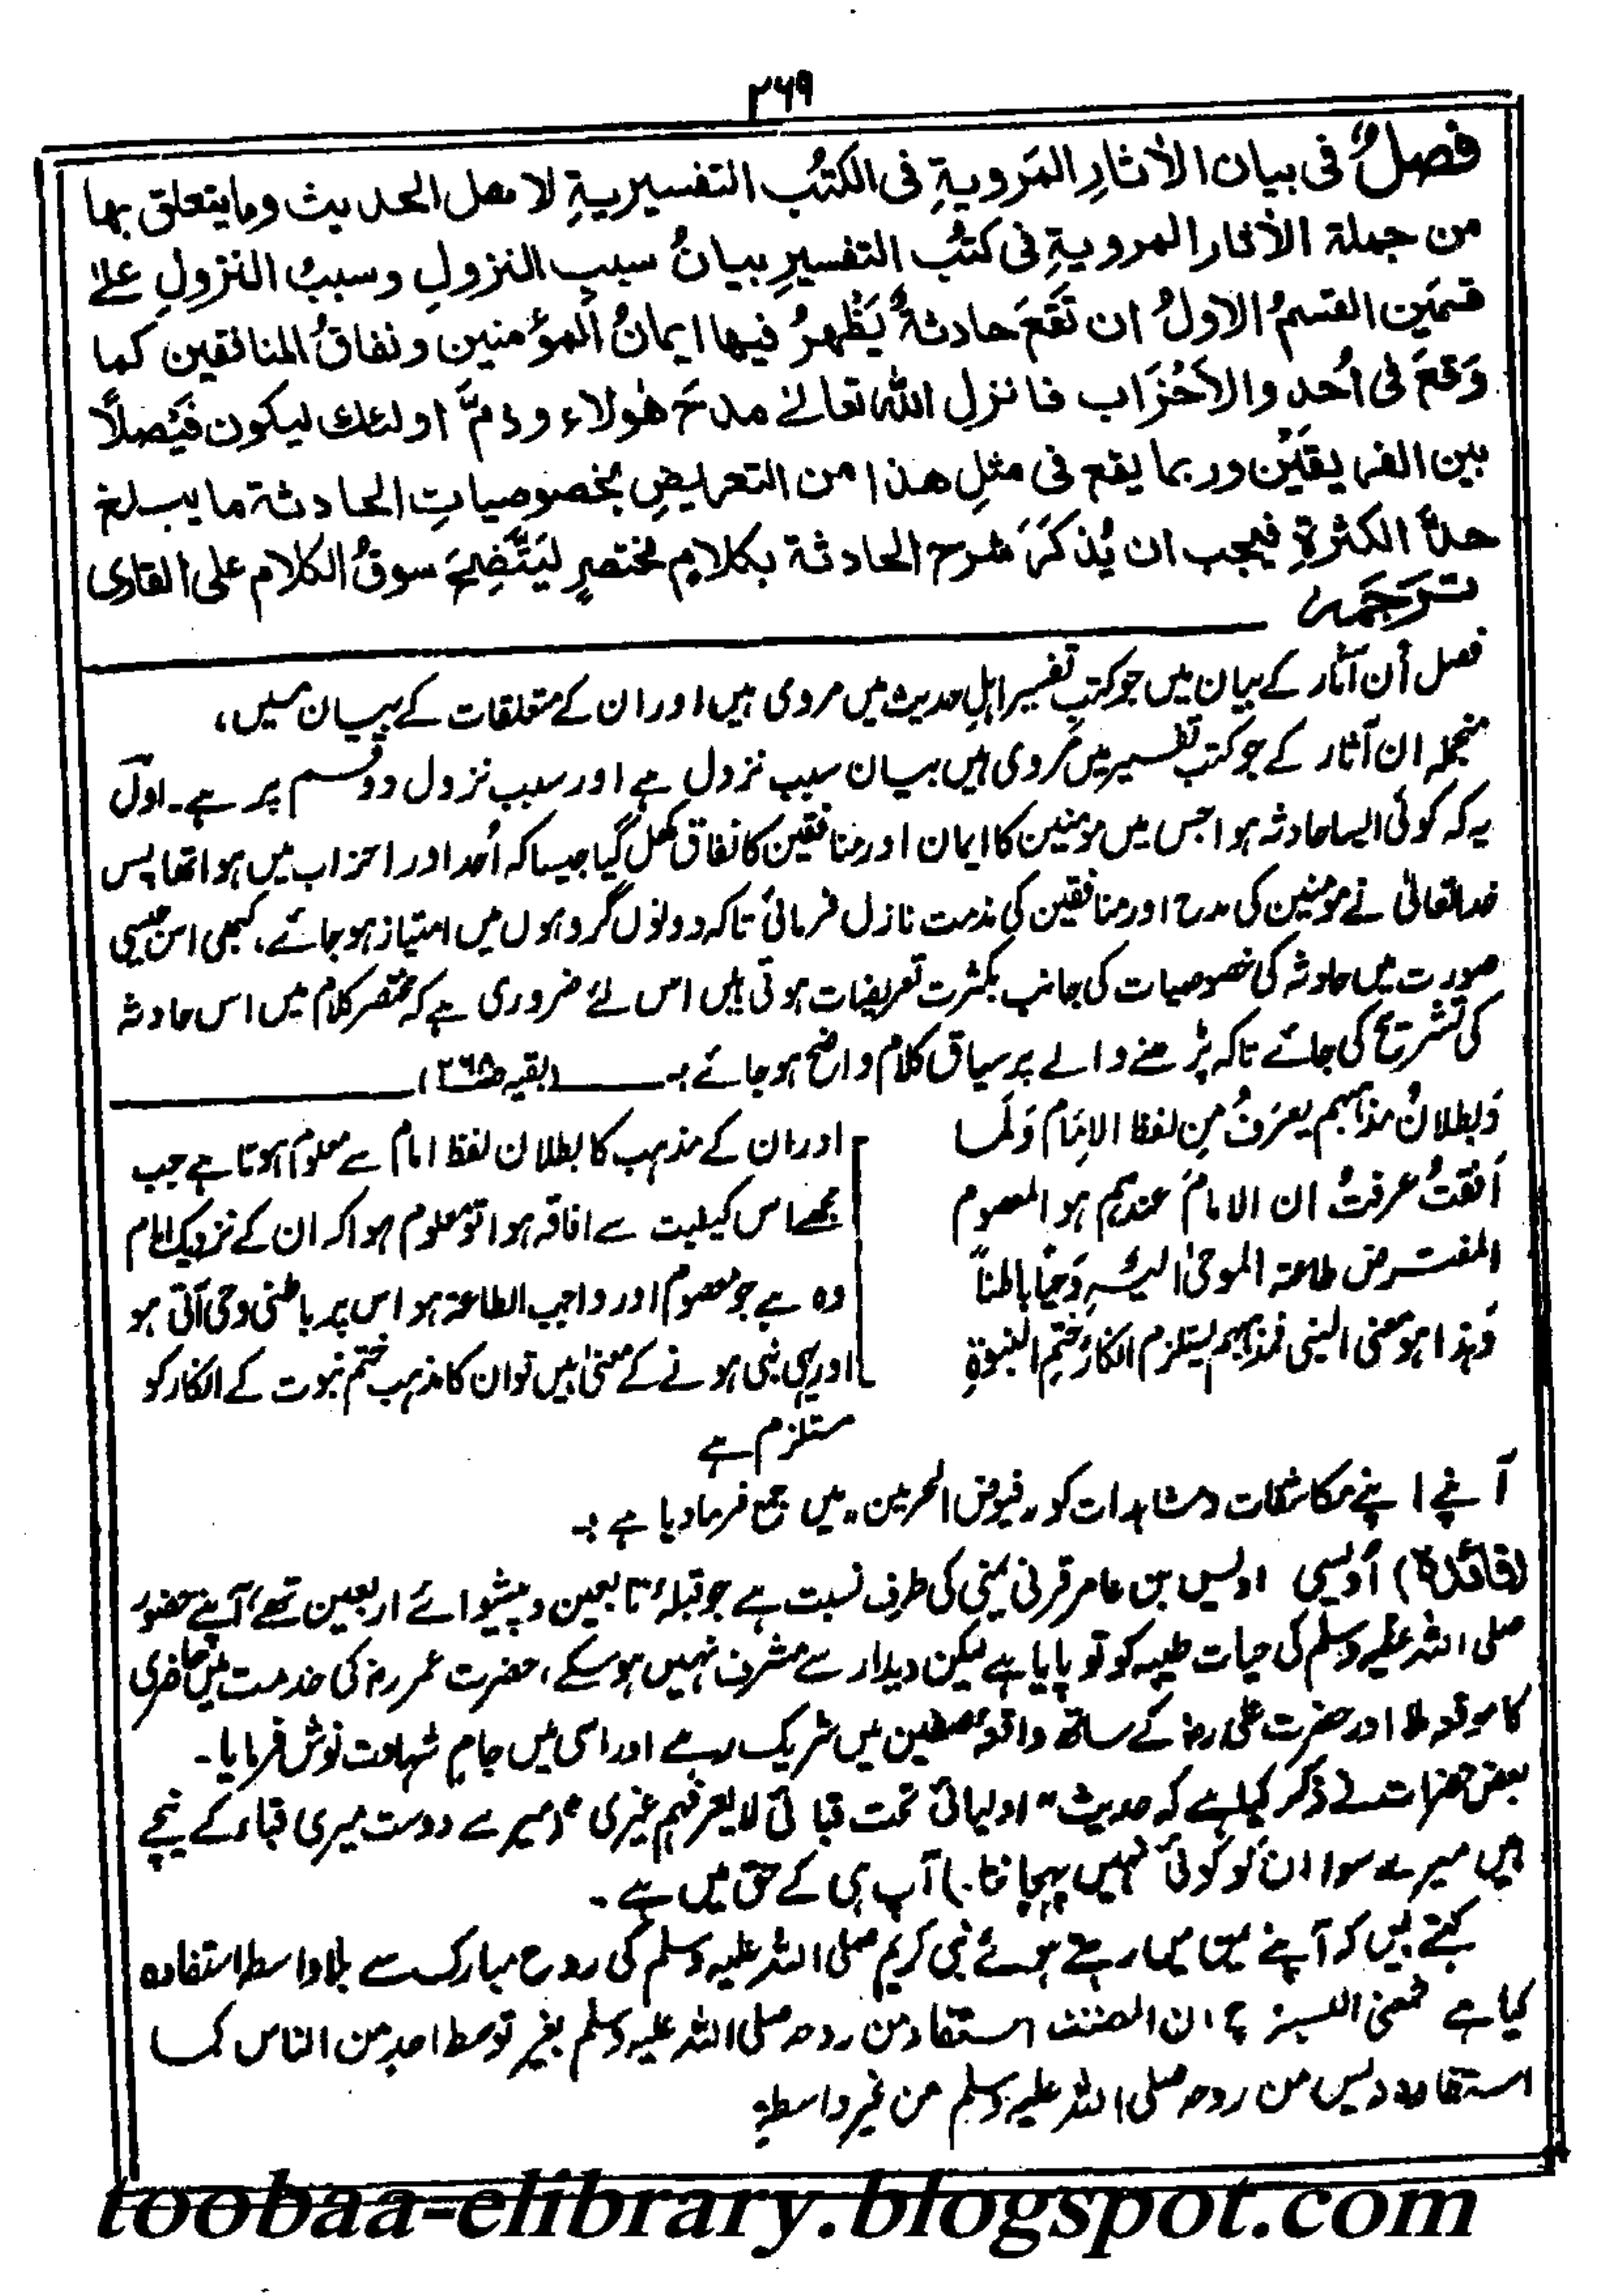 ۲۶۹
فصلٌ فی بیان الأثارِ المَرویةِ فی الکتُب التفسیریةِ لاهل الحدیث وما یتعلق بها
من جملة الأثار المرویةِ فی کتُب التفسیرِ بیانُ سببِ النزولِ وسببُ النزولِ علیٰ
قسمَین القسمُ الاولُ ان تَقَعَ حادثةٌ یَظْهرُ فیها ایمانُ المؤمنین ونفاقُ المنافقین کما
وَقعَ فی اُحدٍ والاَحْزَاب فانزل الله تعالیٰ مدحَ هٰولاء وذمَّ اولئك لیکون فَیْصلاً
بین الفریقَیْن وربما یقع فی مثلِ هذا من التعریضِ بخصوصیاتِ الحادثة ما یبلغ
حدَّ الکثرةِ فیجب ان یُذکَرَ شرح الحادثة بکلامٍ مختصرٍ لیَتَّضِحَ سوقُ الکلام علی القاری
تَرجَمہ
فصل اُن آثار کے بیان میں جو کتبِ تفسیر اہلِ حدیث میں مروی ہیں اور ان کے متعلقات کے بیان میں،
منجملہ ان آثار کے جو کتب تفسیر میں مروی ہیں بیان سبب نزول ہے اور سبب نزول دو قسم پر ہے۔ اوّل
یہ کہ کوئی ایسا حادثہ ہوا جس میں مومنین کا ایمان اور منافقین کا نفاق کھل گیا جیسا کہ اُحد اور احزاب میں ہوا تھا پس
خدا تعالیٰ نے مومنین کی مدح اور منافقین کی مذمت نازل فرمائی تاکہ دونوں گروہوں میں امتیاز ہو جائے، کبھی اس جیسی
صورت میں حادثہ کی خصوصیات کی جانب بکثرت تعریضات ہوتی ہیں اس لئے ضروری ہے کہ مختصر کلام میں اس حادثہ
کی تشریح کی جائے تاکہ پڑھنے والے پر سیاق کلام واضح ہو جائے :۔ (بقیہ ص۲۶۸)
وَبطلانُ مذہبہم یعرَفُ مِن لفظ الاِمَام وَلَمَا
اَفَقتُ عرفتُ ان الامامَ عندہم ہو المعصوم
المفترض طاعتہ الموحیٰ الیہِ وَحیًا باطناً
وَہذا ہو معنی النبی فمذہبہم یستلزم انکارَ ختمِ النبوةِ
اور ان کے مذہب کا بطلان لفظ امام سے معلوم ہوتا ہے جب
مجھے اس کیفیت سے افاقہ ہوا تو معلوم ہوا کہ ان کے نزدیک امام
وہ ہے جو معصوم اور واجب الطاعة ہو اس پر باطنی وحی آتی ہو
اور یہی نبی ہونے کے معنیٰ ہیں تو ان کا مذہب ختم نبوت کے انکار کو
مستلزم ہے
آپنے اپنے مکاشفات ومشاہدات کو "فیوض الحرمین" میں جمع فرما دیا ہے :۔
(فائدہ) اُویسی اویس بن عامر قرنی یمنی کی طرف نسبت ہے جو قبلۂ تابعین و پیشوائے اربعین تھے، آپنے حضور
صلی اللہ علیہ وسلم کی حیات طیبہ کو تو پایا ہے لیکن دیدار سے مشرف نہیں ہو سکے، حضرت عمر رض کی خدمت میں حاضری
کا موقعہ ملا اور حضرت علی رض کے ساتھ واقعۂ صفین میں شریک رہے اور اسی میں جامِ شہادت نوش فرمایا۔
بعض حضرات نے ذکر کیا ہے کہ حدیث "اولیائی تحت قبائی لا یعرفہم غیری" (میرے دوست میری قباء کے نیچے
ہیں میرے سوا ان کو کوئی نہیں پہچانتا۔) آپ ہی کے حق میں ہے۔
کہتے ہیں کہ آپنے یمن میں رہتے ہوئے نبی کریم صلی اللہ علیہ وسلم کی روح مبارک سے بلاواسطہ استفادہ
کیا ہے فمعنی النسبة ان المصنف استفاد من روحہ صلی اللہ علیہ وسلم بغیر توسط احدٍ من الناس کما
استفاد اویس من روحہ صلی اللہ علیہ وسلم من غیر واسطةٍ
toobaa-elibrary.blogspot.com